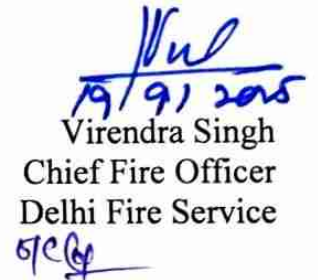 19/9/2025
Virendra Singh
Chief Fire Officer
Delhi Fire Service